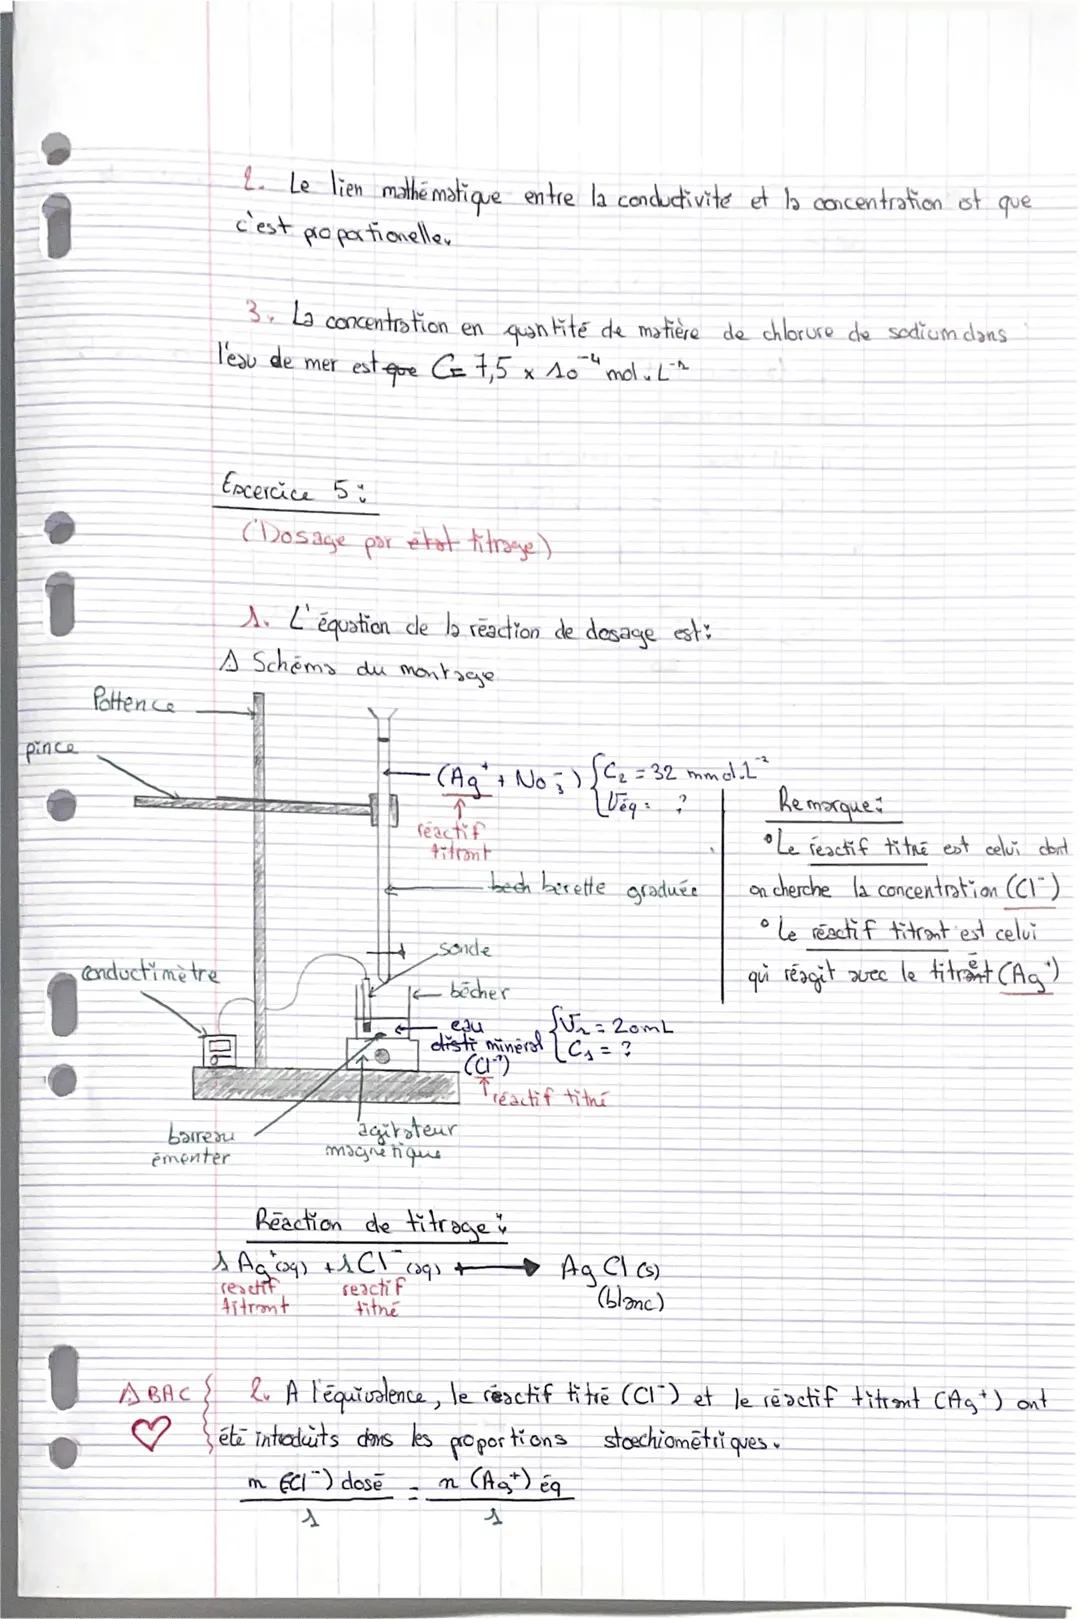 2. Le lien mathématique entre la conductivité et la concentration est que
c'est proportionelle.
3. La concentration en quantité de matière de chlorure de sodium dans
l'eau de mer est que C = 7,5 x 10⁻⁴ mol.L⁻¹
Excercice 5 :
(Dosage par état titrage)
1. L'équation de la réaction de dosage est :
Δ Schéma du montage
Pottence
pince
(Ag⁺ + No₃⁻) { C₂ = 32 mmol.L⁻¹
Véq = ?
réactif
titrant
bech burette graduée
Remarque :
° Le réactif titré est celui dont
on cherche la concentration (Cl⁻)
° Le réactif titrant est celui
qui réagit avec le titré (Ag⁺)
sonde
conductimètre
bécher
eau
disti minéral
(Cl⁻)
{ V₁ = 20mL
C₁ = ?
réactif titré
barreau
émenter
agitateur
magnétique
Réaction de titrage :
1 Ag⁺(aq) + 1 Cl⁻(aq) → Ag Cl (s)
reactif
titrant
reactif
titré
(blanc)
Δ BAC
2. A l'équivalence, le réactif titré (Cl⁻) et le réactif titrant (Ag⁺) ont
été introduits dans les proportions stoechiométriques.
n (Cl⁻) dosé = n (Ag⁺) éq
1 1